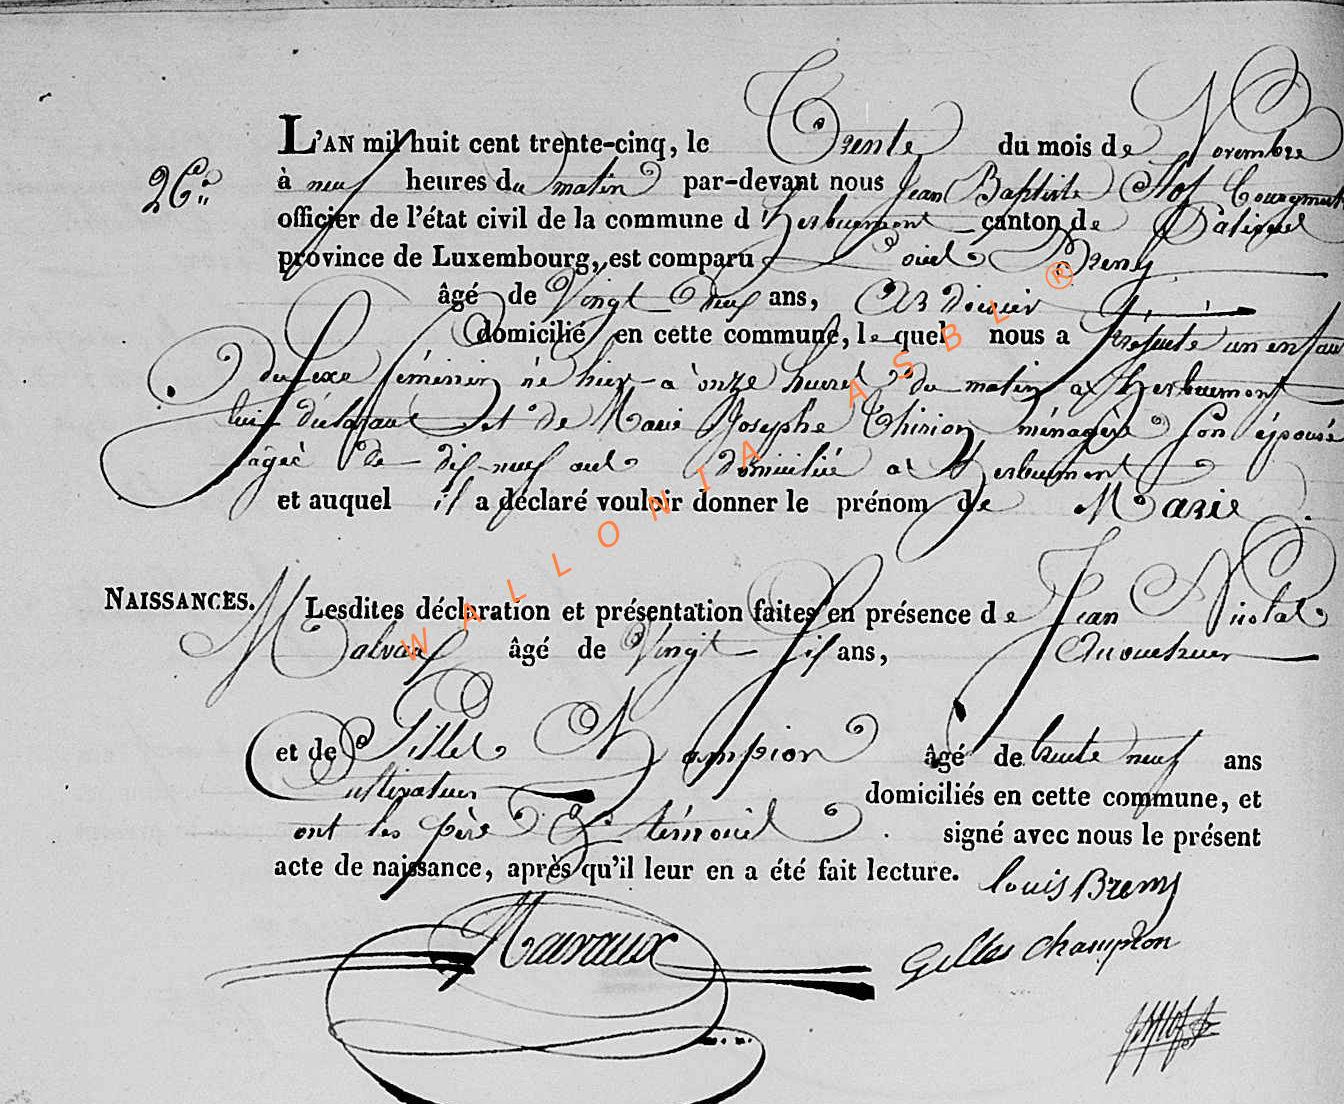 L'AN mil huit cent trente-cinq, le Trente du mois de Novembre
26.e
à neuf heures du matin par-devant nous Jean Baptiste Hof Bourgmestre
officier de l'état civil de la commune d'Herbeumont canton de Paliseul
province de Luxembourg, est comparu Louis Bremy
âgé de Vingt neuf ans, Ardoisier
domicilié en cette commune, lequel nous a présenté un enfant
du sexe féminin né hier à onze heures du matin a Herbeumont
lui déclarant et de Marie Josephe Thirion ménagère son épouse
âgée de dix-neuf ans domiciliée a Herbeumont
et auquel il a déclaré vouloir donner le prénom de Marie
NAISSANCES.
Lesdites déclaration et présentation faites en présence de Jean Nicolas
Malvaux âgé de Vingt six ans,
et de Gilles Champion âgé de trente neuf ans
Cultivateur
domiciliés en cette commune, et
ont les père & témoins signé avec nous le présent
acte de naissance, après qu'il leur en a été fait lecture.
Louis Bremy
Malvaux
Gilles Champion
WALLONIA ASBL ®